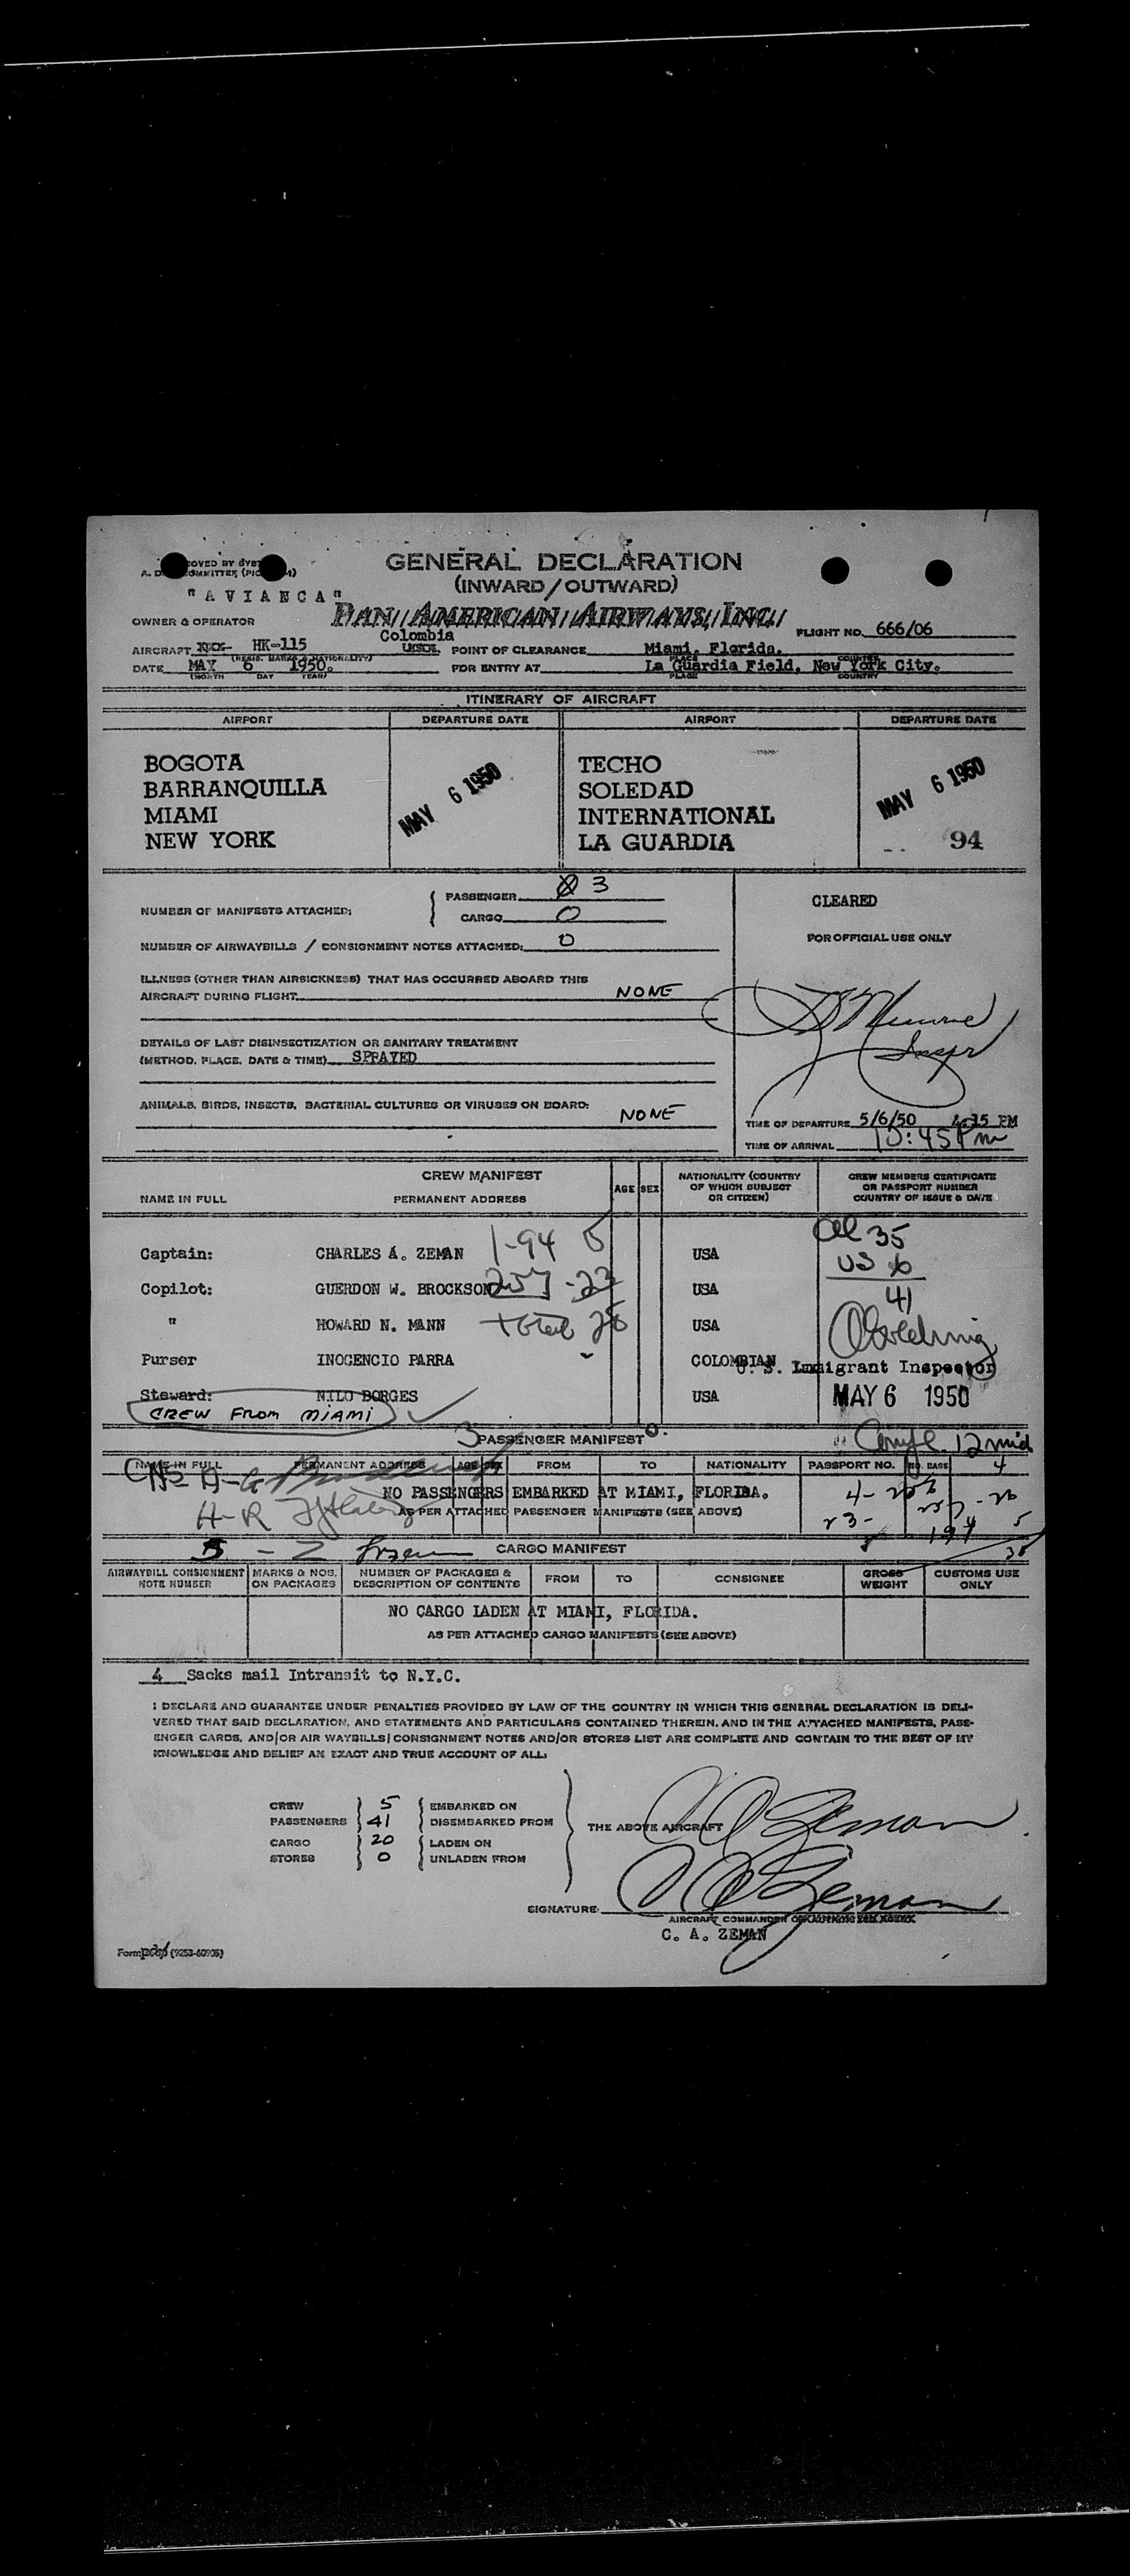 GENERAL DECLARATION
(INWARD/OUTWARD)
"AVIANCA"
PAN AMERICAN AIRWAYS, INC.
OWNER & OPERATOR
FLIGHT NO. 666/06
Colombia
AIRCRAFT HK-115 POINT OF CLEARANCE Miami, Florida.
DATE MAY 6 1950. FOR ENTRY AT La Guardia Field, New York City.
(MONTH DAY YEAR) PLACE COUNTRY
ITINERARY OF AIRCRAFT
AIRPORT DEPARTURE DATE AIRPORT DEPARTURE DATE
BOGOTA TECHO
BARRANQUILLA MAY 6 1950 SOLEDAD MAY 6 1950
MIAMI INTERNATIONAL
NEW YORK LA GUARDIA 94
NUMBER OF MANIFESTS ATTACHED: PASSENGER 3
CARGO 0
CLEARED
NUMBER OF AIRWAYBILLS / CONSIGNMENT NOTES ATTACHED: 0
FOR OFFICIAL USE ONLY
ILLNESS (OTHER THAN AIRSICKNESS) THAT HAS OCCURRED ABOARD THIS
AIRCRAFT DURING FLIGHT NONE
DETAILS OF LAST DISINSECTIZATION OR SANITARY TREATMENT
(METHOD, PLACE, DATE & TIME) SPRAYED
ANIMALS, BIRDS, INSECTS, BACTERIAL CULTURES OR VIRUSES ON BOARD:
NONE
Inspr
TIME OF DEPARTURE 5/6/50 PM
TIME OF ARRIVAL 10:45 Pm
CREW MANIFEST
NAME IN FULL PERMANENT ADDRESS AGE SEX
NATIONALITY (COUNTRY
OF WHICH SUBJECT
OR CITIZEN)
CREW MEMBERS CERTIFICATE
OR PASSPORT NUMBER
COUNTRY OF ISSUE & DATE
Captain: CHARLES A. ZEMAN 1-94 5 USA 35
US 6
Copilot: GUERDON W. BROCKSON 257-23 USA
41
" HOWARD N. MANN total 28 USA
Purser INOCENCIO PARRA COLOMBIAN
U. S. Immigrant Inspector
Steward: NILO BORGES USA MAY 6 1950
CREW FROM MIAMI
3 PASSENGER MANIFEST 0.
12 mid
NAME IN FULL PERMANENT ADDRESS AGE SEX FROM TO NATIONALITY PASSPORT NO. NO. BAGS 4
NO PASSENGERS EMBARKED AT MIAMI, FLORIDA.
AS PER ATTACHED PASSENGER MANIFESTS (SEE ABOVE)
H-R
CARGO MANIFEST
AIRWAYBILL CONSIGNMENT
NOTE NUMBER
MARKS & NOS.
ON PACKAGES
NUMBER OF PACKAGES &
DESCRIPTION OF CONTENTS
FROM TO CONSIGNEE
GROSS
WEIGHT
CUSTOMS USE
ONLY
NO CARGO LADEN AT MIAMI, FLORIDA.
AS PER ATTACHED CARGO MANIFESTS (SEE ABOVE)
4 Sacks mail Intransit to N.Y.C.
I DECLARE AND GUARANTEE UNDER PENALTIES PROVIDED BY LAW OF THE COUNTRY IN WHICH THIS GENERAL DECLARATION IS DELI-
VERED THAT SAID DECLARATION, AND STATEMENTS AND PARTICULARS CONTAINED THEREIN, AND IN THE ATTACHED MANIFESTS, PASS-
ENGER CARDS, AND/OR AIR WAYBILLS/CONSIGNMENT NOTES AND/OR STORES LIST ARE COMPLETE AND CONTAIN TO THE BEST OF MY
KNOWLEDGE AND BELIEF AN EXACT AND TRUE ACCOUNT OF ALL:
CREW 5 EMBARKED ON
PASSENGERS 41 DISEMBARKED FROM
THE ABOVE AIRCRAFT C A Zeman
CARGO 20 LADEN ON
STORES 0 UNLADEN FROM
SIGNATURE: C A Zeman
AIRCRAFT COMMANDER
C. A. ZEMAN